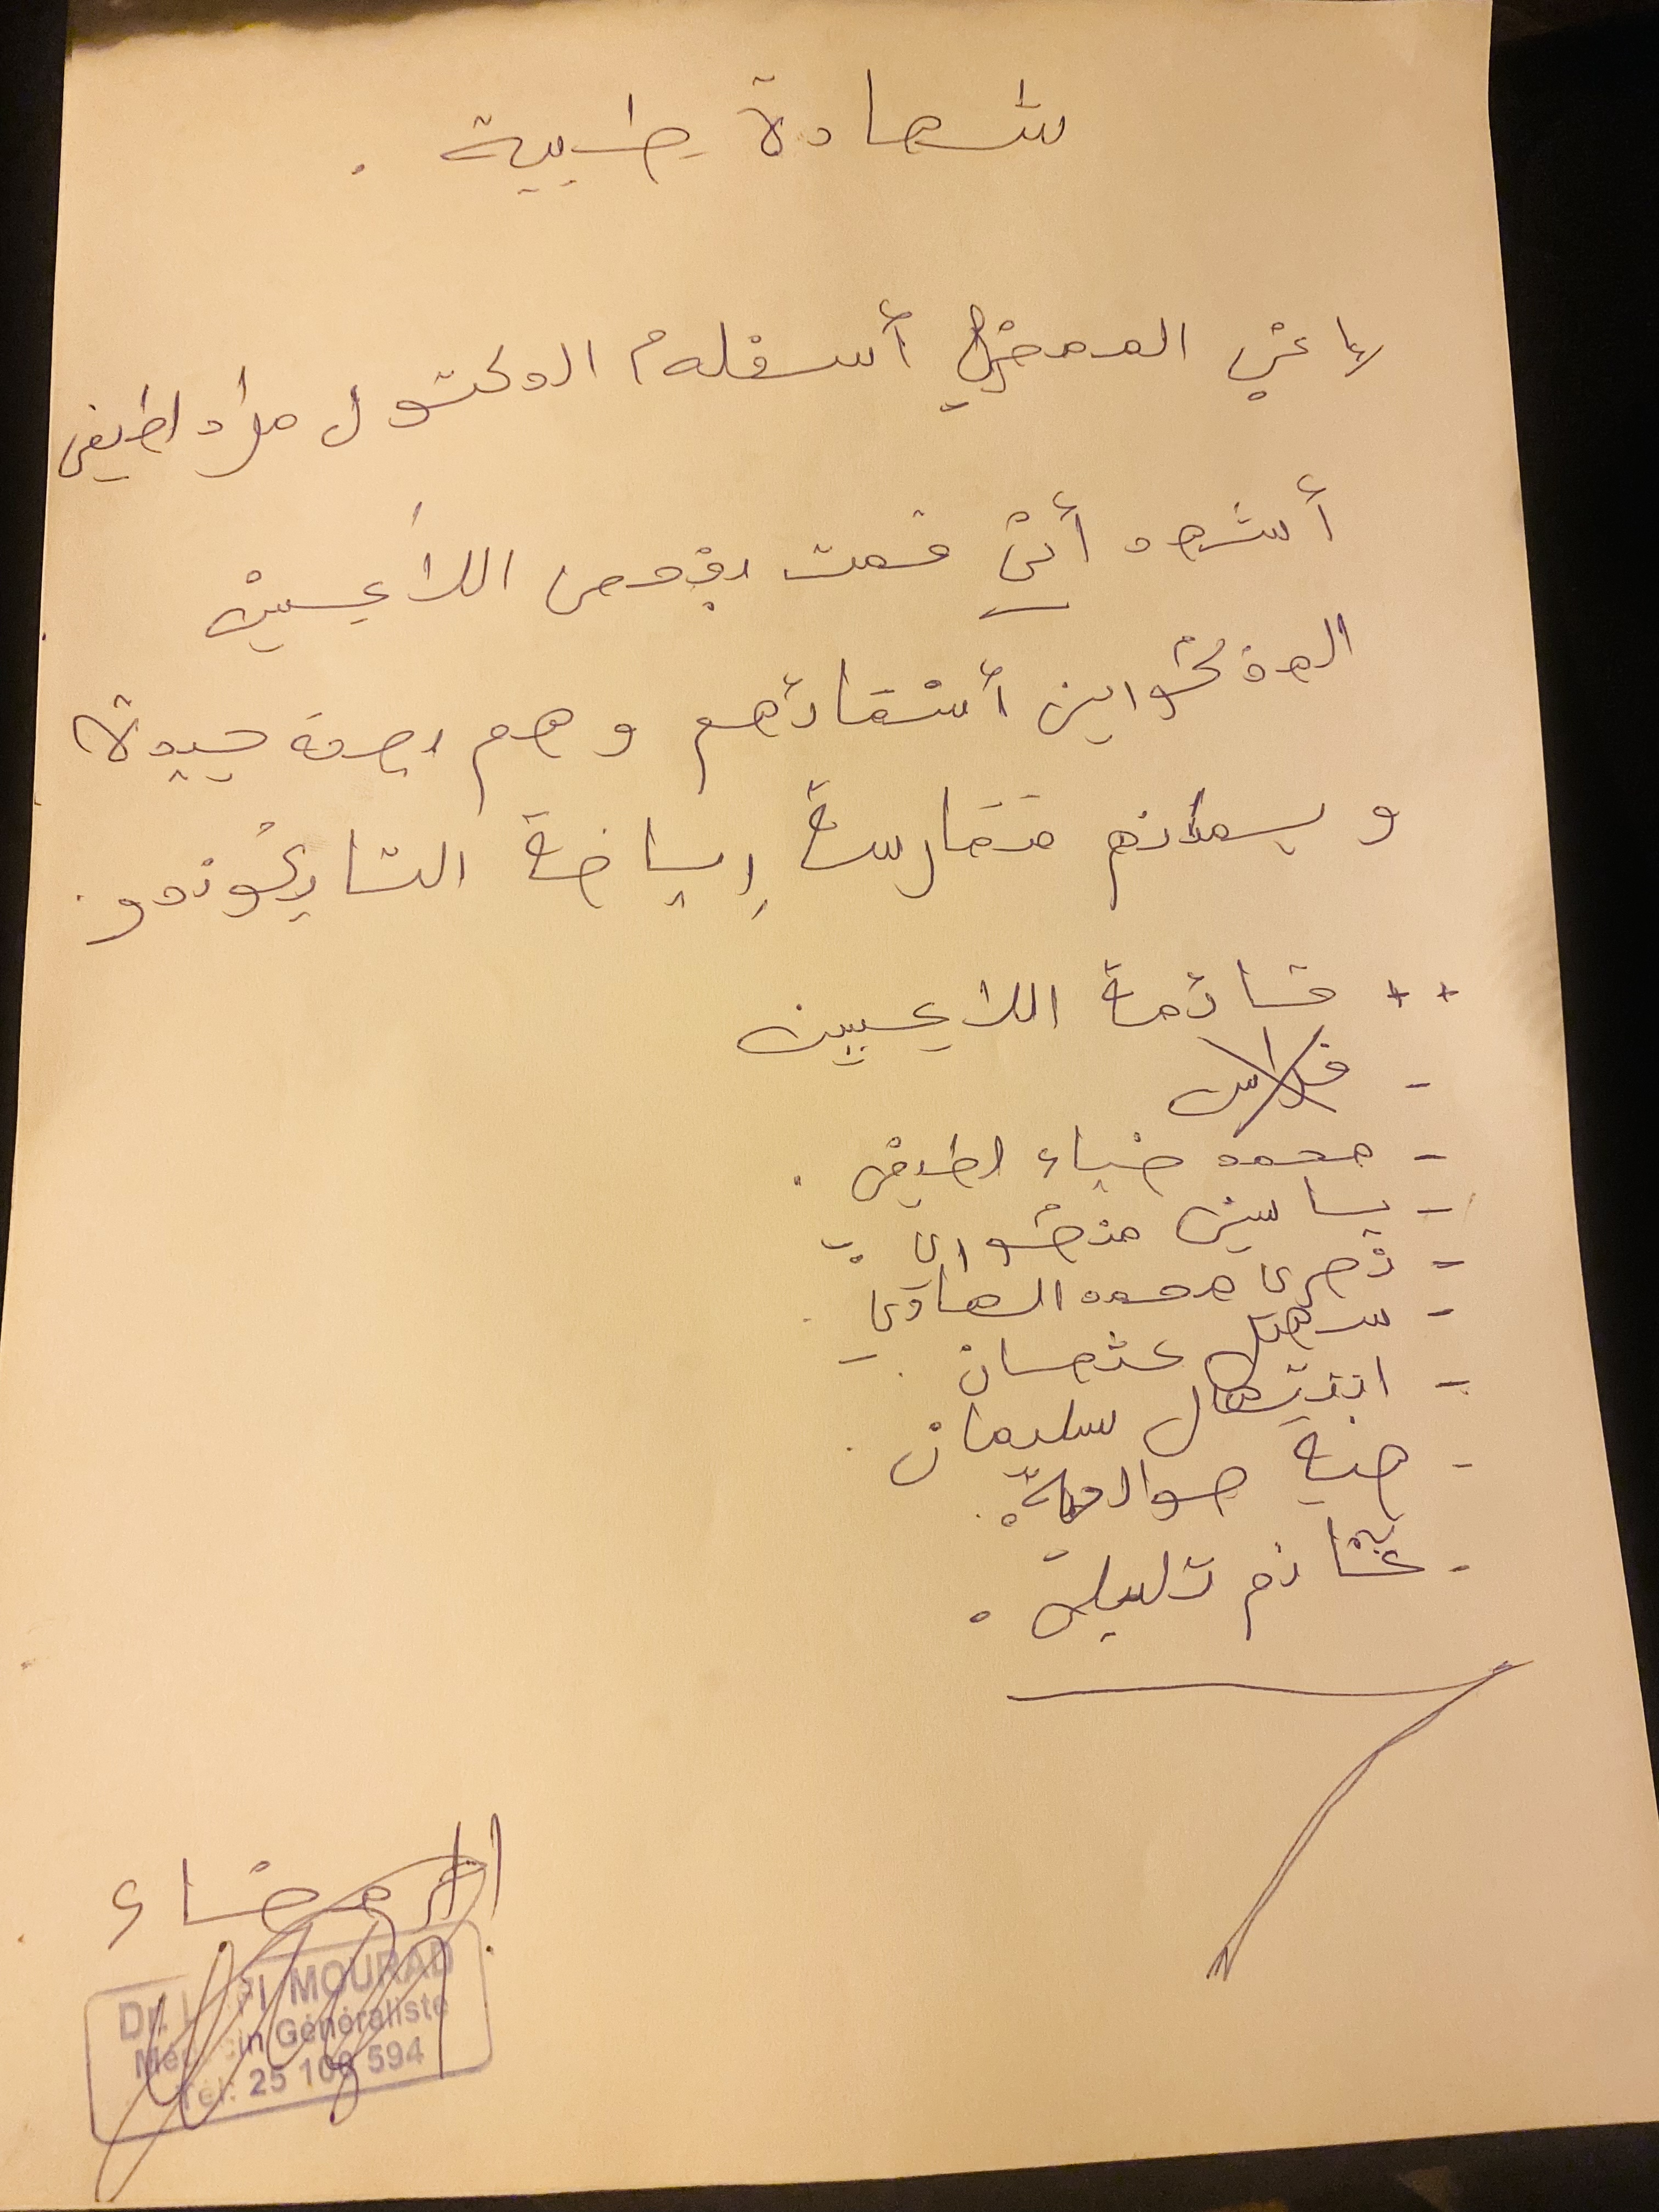 شهادة طبية .
إني الممضي أسفله الدكتور مراد لطيفي
أشهد أني قمت بفحص اللاعبين
المذكورين أسفله وهم بصحة جيدة
و يمكنهم ممارسة رياضة التايكوندو .
++ قائمة اللاعبين
- فراس
- محمد ضياء لطيفي .
- ياسين
- محمد الهادي .
- عثمان .
- ابتهال سليمان .
- هبة
- تليلي .
الإمضاء
Dr. MOURAD
Médecin Généraliste
Tél: 25 108 594